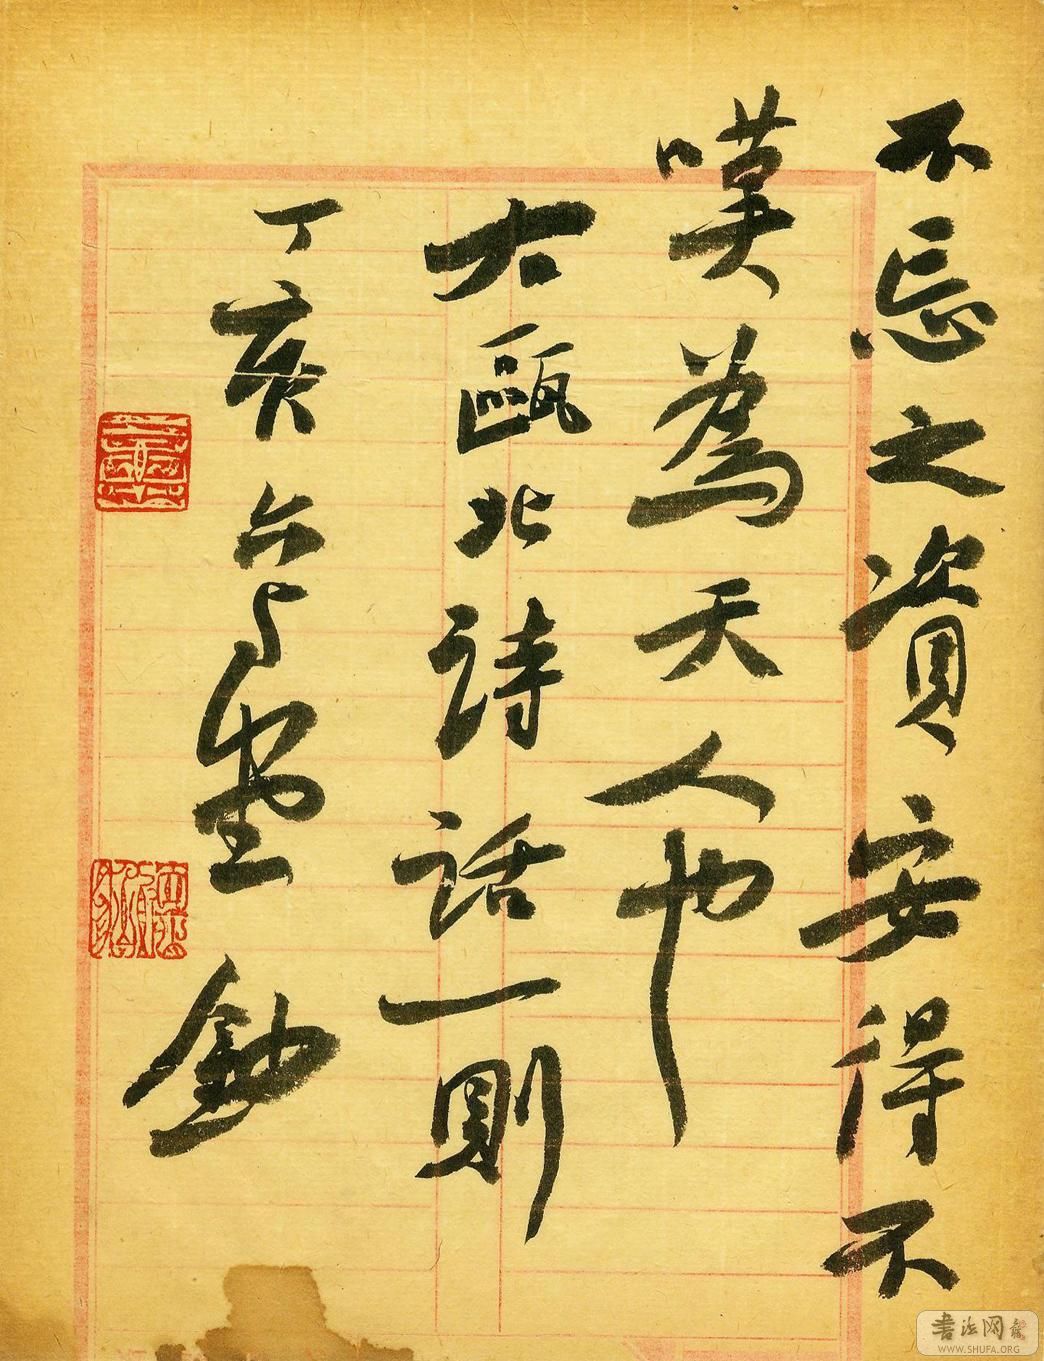 不忘之資安得不
嘆為天人也
右甌北詩話一則
丁亥 堂 鈔
書法网
WWW.SHUFA.ORG